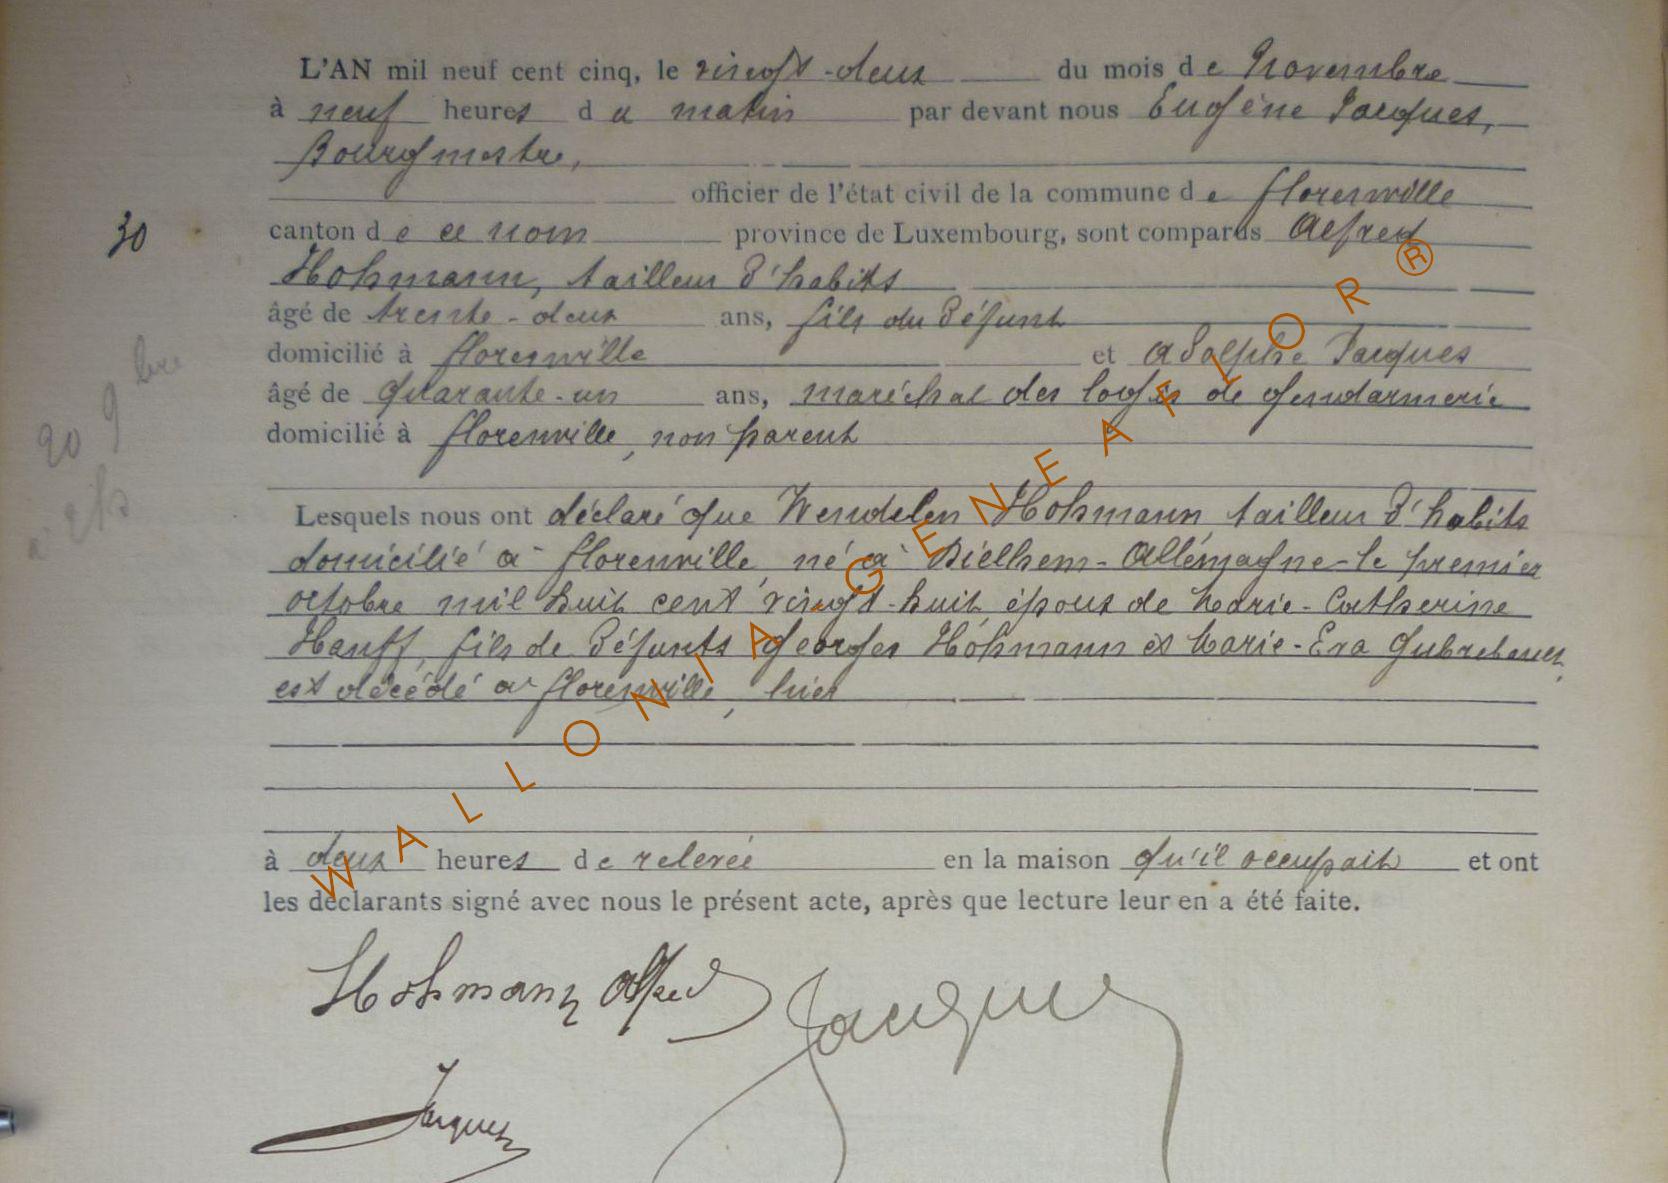 L'AN mil neuf cent cinq, le vingt-deux du mois de Novembre
à neuf heures du matin par devant nous Eugène Jacques,
Bourgmestre,
officier de l'état civil de la commune de florenville
30
canton de ce nom province de Luxembourg, sont comparus Alfred
Hohmann, tailleur d'habits
âgé de trente-deux ans, fils du défunt
domicilié à florenville et Adolphe Jacques
âgé de quarante-un ans, maréchal des logis de gendarmerie
domicilié à florenville, non parent
Lesquels nous ont déclaré que Wendelen Hohmann tailleur d'habits
domicilié à florenville, né à Dielhem-Allémagne-le premier
octobre mil huit cent vingt-huit époux de Marie-Catherine
Hauff, fils de défunts Georges Hohmann et Marie-Eva
est décédé à florenville, hier
à deux heures de relevée en la maison qu'il occupait et ont
les déclarants signé avec nous le présent acte, après que lecture leur en a été faite.
Hohmann Alfred Jacques
Jacques
WALLONIA GENEAFLOR ®